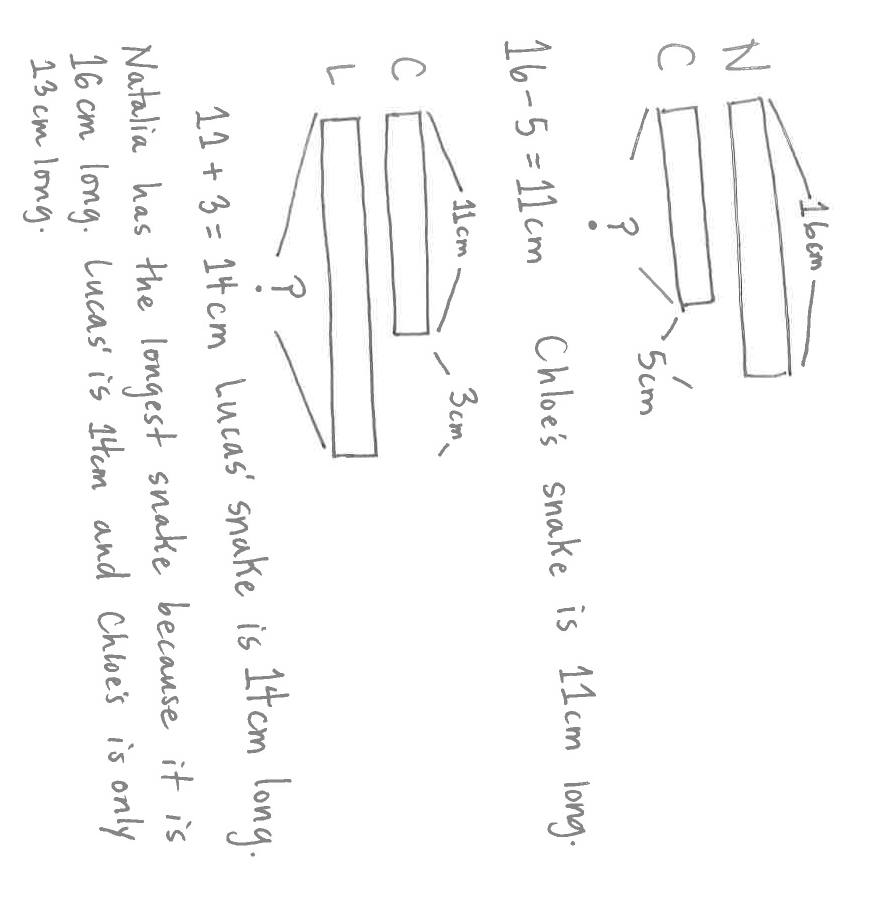 16cm
N
C
5cm
?
16-5=11cm Chloe's snake is 11cm long.
11cm
3cm
C
L
?
11+3=14cm Lucas' snake is 14cm long.
Natalia has the longest snake because it is
16cm long. Lucas' is 14cm and Chloe's is only
13cm long.